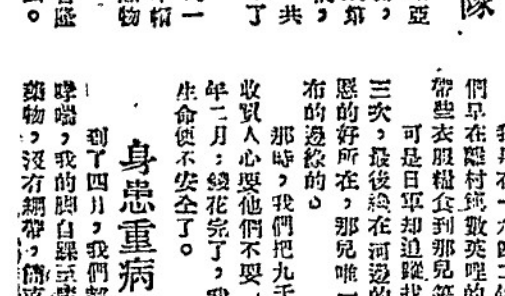 隊
亞
第
共
了
一
物
隆
。
我是在一九四二
們早在離村鎮數英哩的
帶些衣服糧食到那兒
可是日軍却追蹤找
三次，最後總在河邊的
的好所在，那兒唯一
布的邊緣的。
那時，我們把九千
收買人心要他們不要
年二月；錢花完了，我
生命便不安全了。
身患重病
到了四月，我們都
哮喘，我的脚自踝至膝
藥物，沒有綳帶，